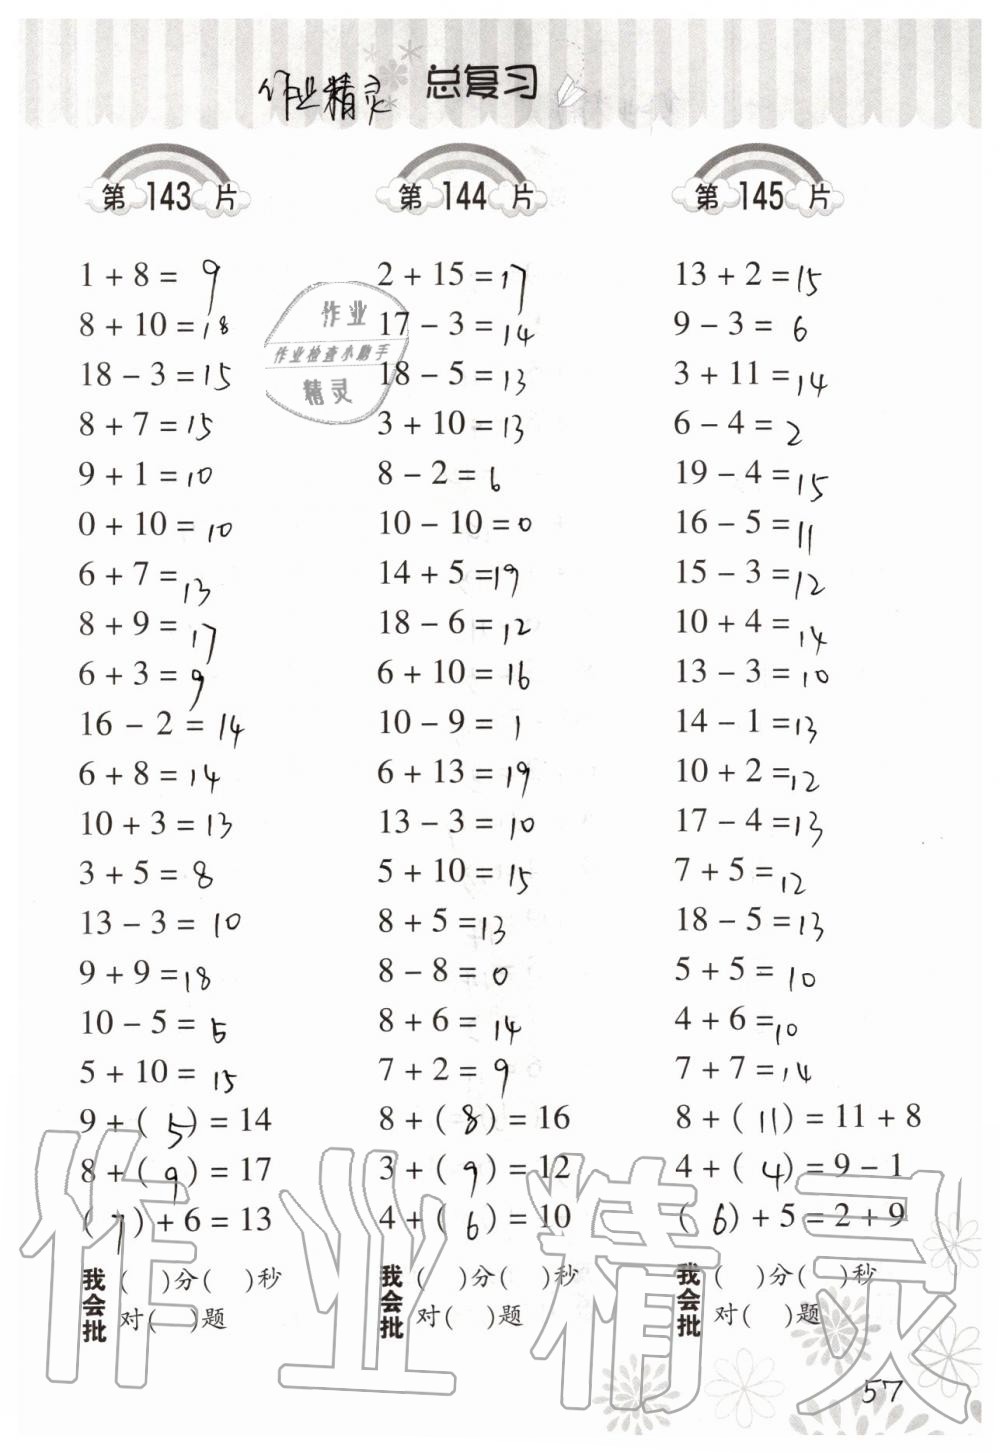 作业精灵 总复习
第143片
1 + 8 = 9
8 + 10 = 18
18 - 3 = 15
8 + 7 = 15
9 + 1 = 10
0 + 10 = 10
6 + 7 = 13
8 + 9 = 17
6 + 3 = 9
16 - 2 = 14
6 + 8 = 14
10 + 3 = 13
3 + 5 = 8
13 - 3 = 10
9 + 9 = 18
10 - 5 = 5
5 + 10 = 15
9 + ( 5 ) = 14
8 + ( 9 ) = 17
( 7 ) + 6 = 13
我会批 ( )分( )秒
对( )题
第144片
2 + 15 = 17
17 - 3 = 14
18 - 5 = 13
3 + 10 = 13
8 - 2 = 6
10 - 10 = 0
14 + 5 = 19
18 - 6 = 12
6 + 10 = 16
10 - 9 = 1
6 + 13 = 19
13 - 3 = 10
5 + 10 = 15
8 + 5 = 13
8 - 8 = 0
8 + 6 = 14
7 + 2 = 9
8 + ( 8 ) = 16
3 + ( 9 ) = 12
4 + ( 6 ) = 10
我会批 ( )分( )秒
对( )题
第145片
13 + 2 = 15
9 - 3 = 6
3 + 11 = 14
6 - 4 = 2
19 - 4 = 15
16 - 5 = 11
15 - 3 = 12
10 + 4 = 14
13 - 3 = 10
14 - 1 = 13
10 + 2 = 12
17 - 4 = 13
7 + 5 = 12
18 - 5 = 13
5 + 5 = 10
4 + 6 = 10
7 + 7 = 14
8 + ( 11 ) = 11 + 8
4 + ( 4 ) = 9 - 1
( 6 ) + 5 = 2 + 9
我会批 ( )分( )秒
对( )题
作业
作业检查小助手
精灵
作业精灵
57